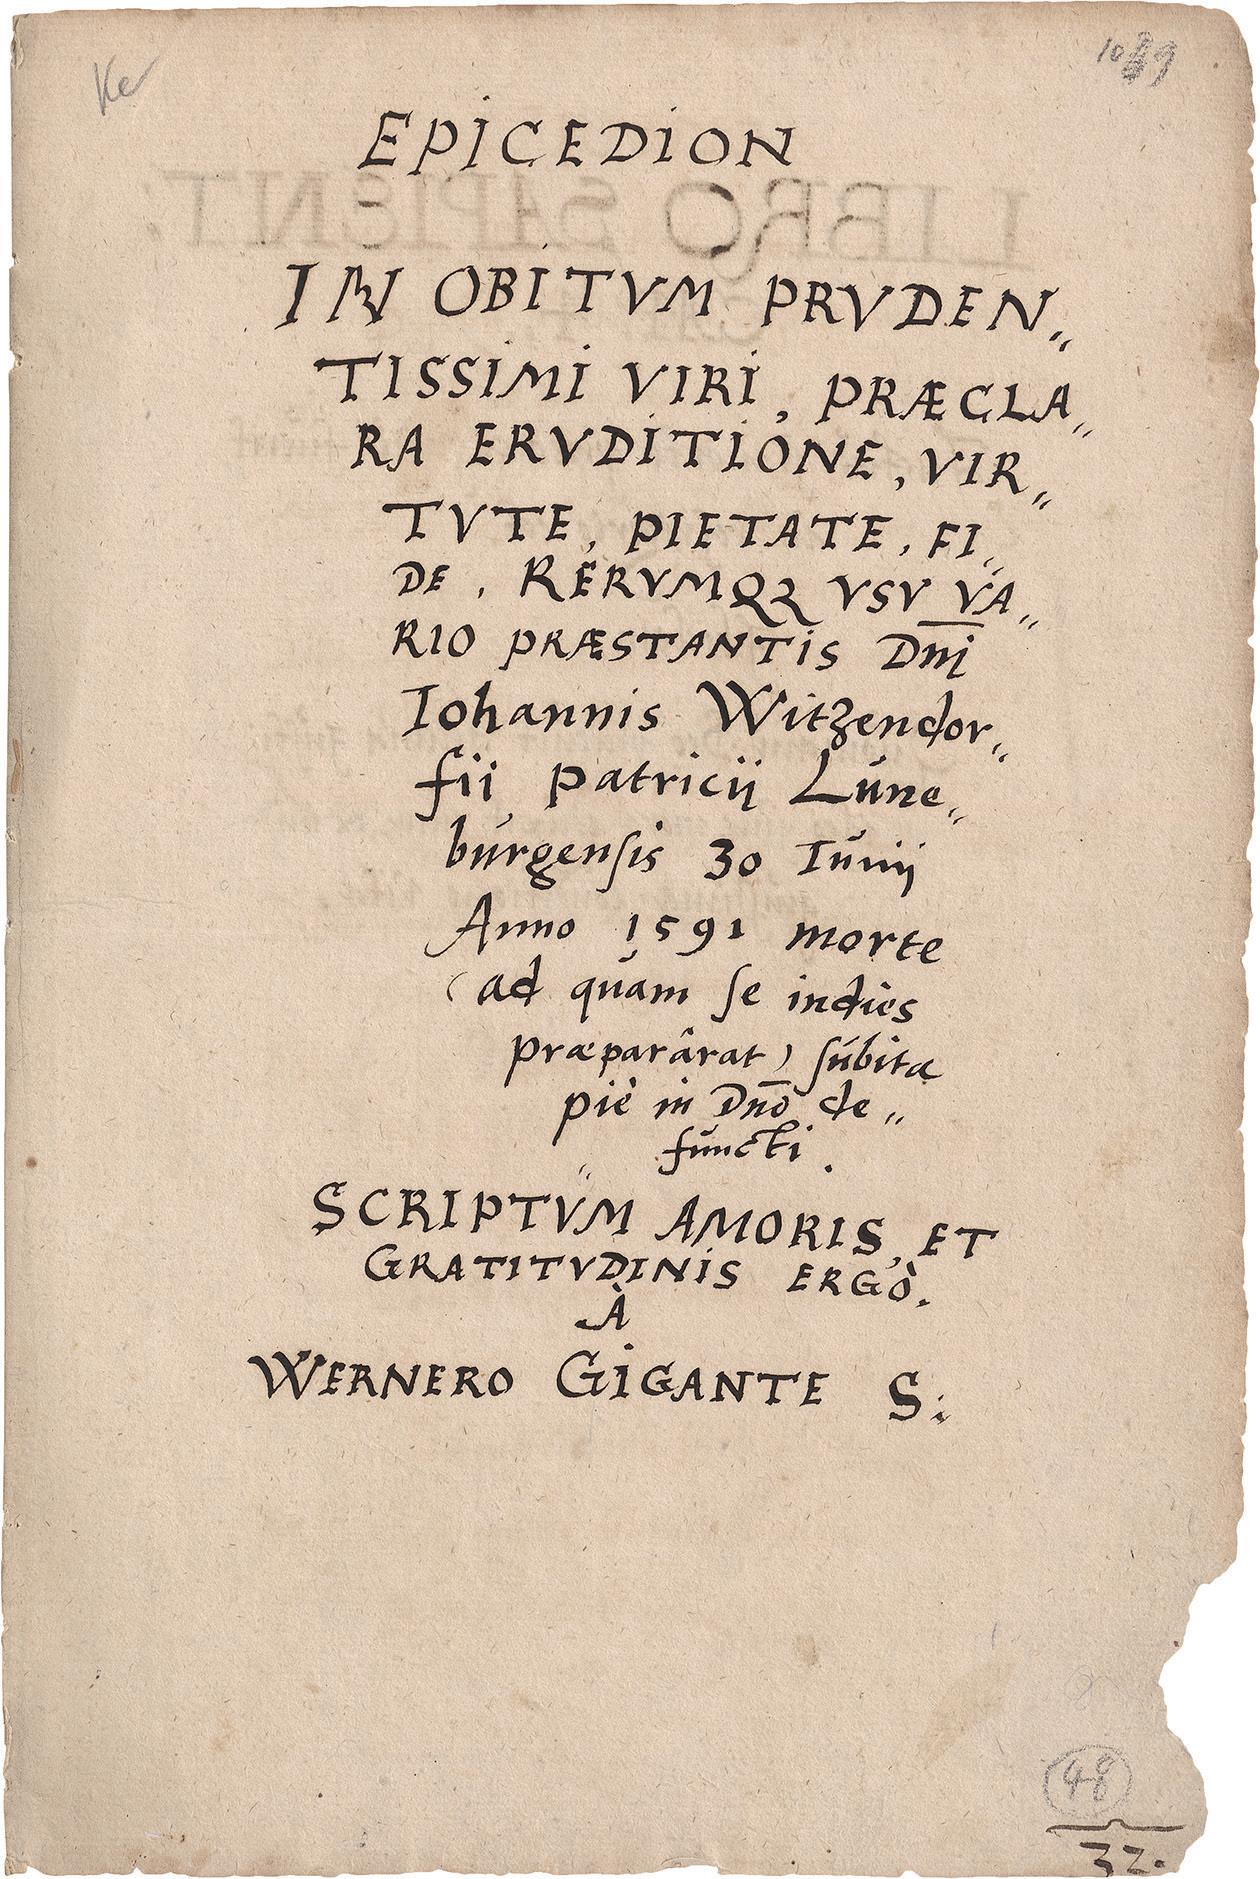 Ke
1089
EPICEDION
IN OBITVM PRVDEN„
TISSIMI VIRI, PRÆCLA„
RA ERVDITIONE, VIR„
TVTE, PIETATE, FI„
DE, RERVMQꝫ VSV VA„
RIO PRÆSTANTIS Dn̅i
Iohannis Witzendor„
fii Patricii Lúne„
búrgenſis 30 Iúnij
Anno 1591 morte
(ad quam ſe indies
præparârat) ſúbita
piè in Dn̅o de„
fúncti.
SCRIPTVM AMORIS, ET
GRATITVDINIS ERGÒ.
À
WERNERO GIGANTE S:
48
32.